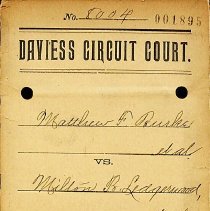 No. 8004 001895
DAVIESS CIRCUIT COURT.
Matthew F Burke
et al
VS.
Milton B. Ledgerwood,